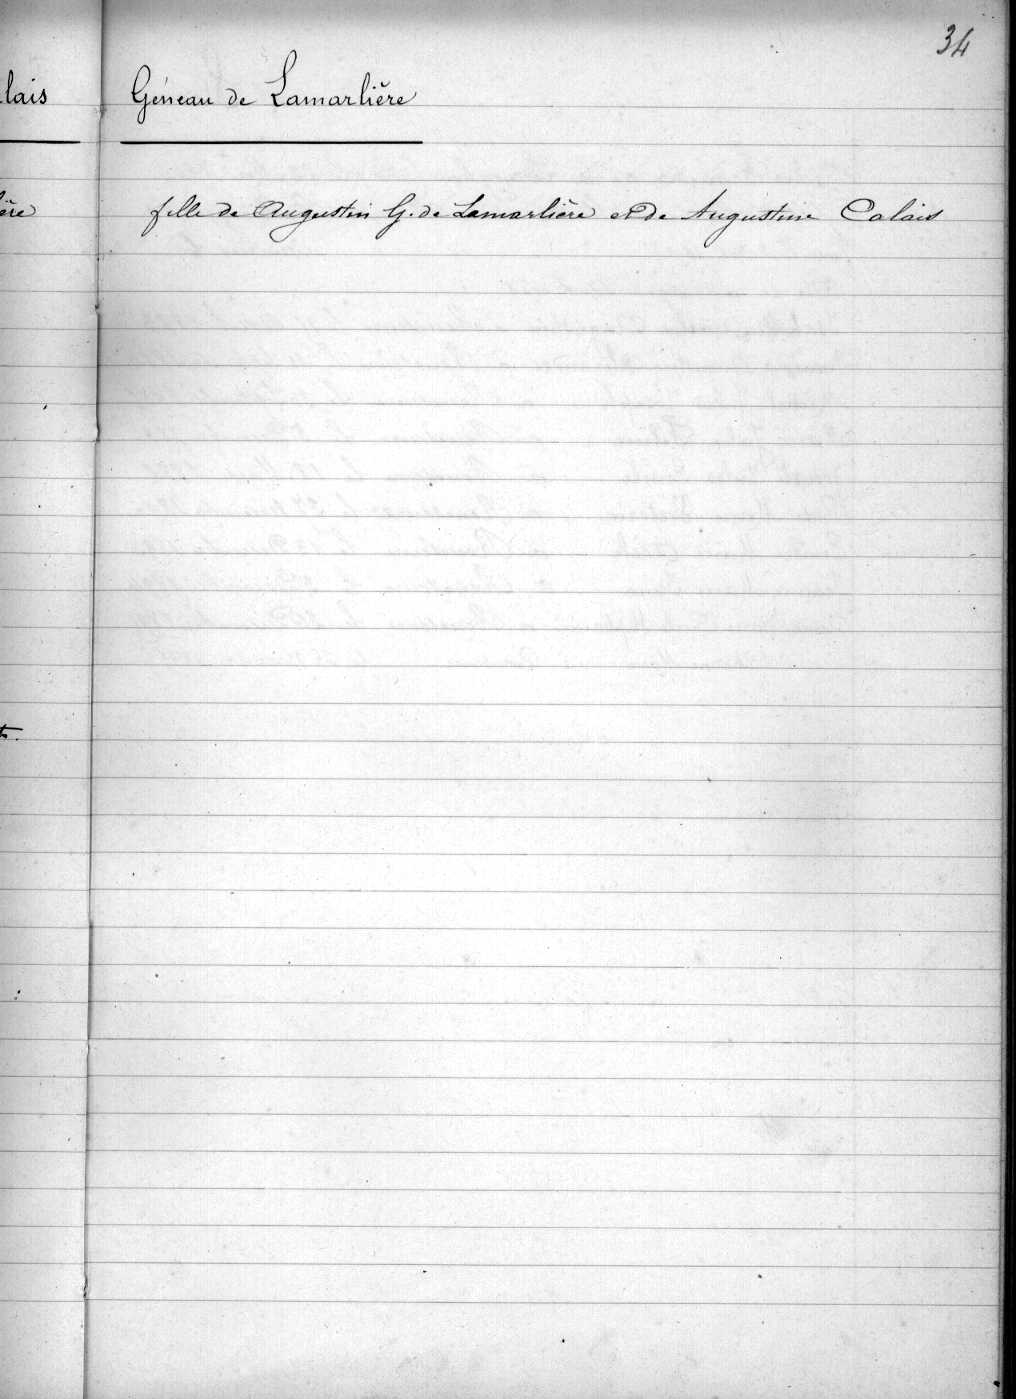 34
lais Géneau de Lamarlière
ère fille de Augustin G. de Lamarlière et de Augustine Calais